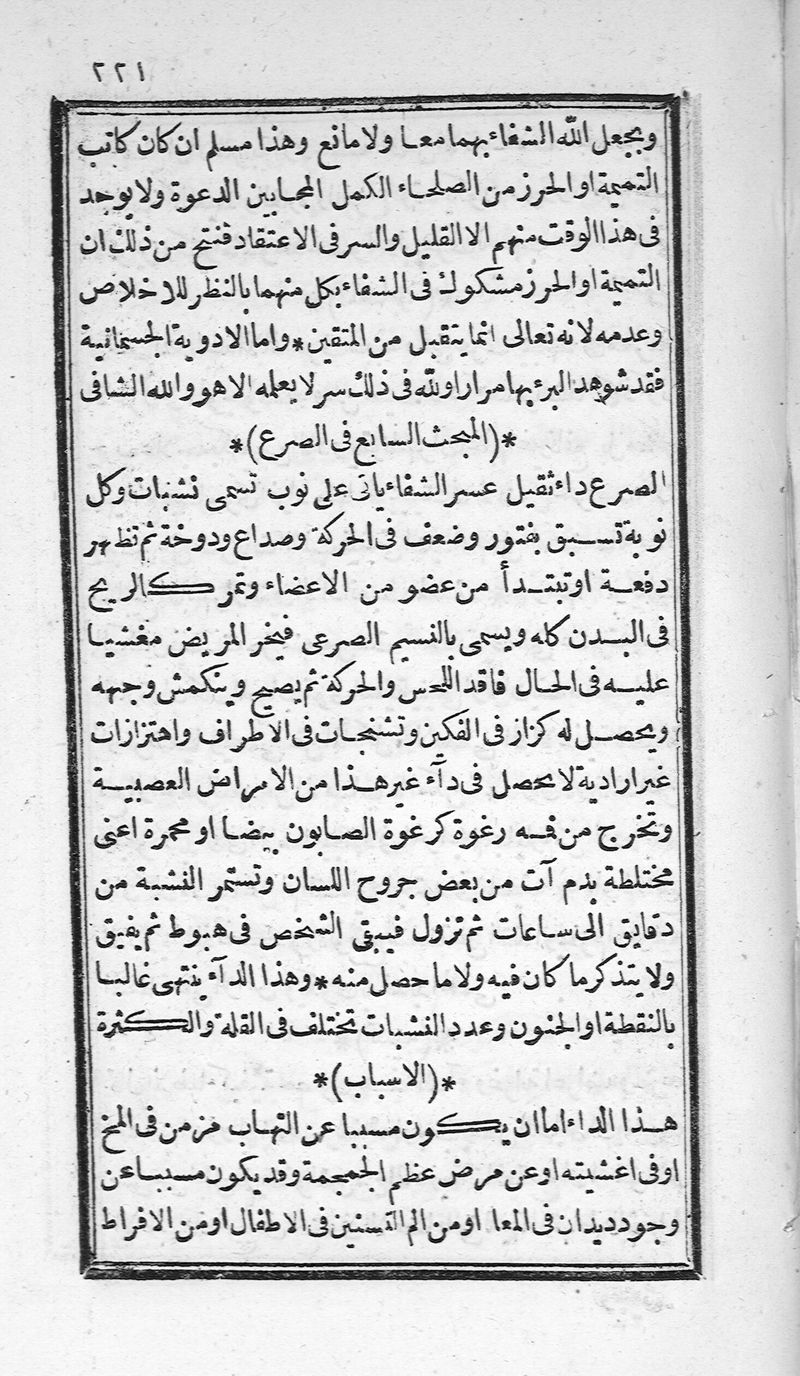 ٢٢١
ويجعل الله الشفاء بهما معا ولا مانع وهذا مسلم ان كان كاتب
التميمة او الحرز من الصلحاء الكمل المجابين الدعوة ولا يوجد
فى هذا الوقت منهم الا القليل والسر فى الاعتقاد فنتج من ذلك ان
التميمة او الحرز مشكوك فى الشفاء بكل منهما بالنظر للاخلاص
وعدمه لانه تعالى انما يتقبل من المتقين * واما الادوية الجسمانية
فقد شوهد البرء بها مرارا ولله فى ذلك سر لا يعلمه الا هو والله الشافى
*(المبحث السابع فى الصرع)*
الصرع داء ثقيل عسر الشفاء ياتى على نوب تسمى نشبات وكل
نوبة تسبق بفتور وضعف فى الحركة وصداع ودوخة ثم تظهر
دفعة او تبتدأ من عضو من الاعضاء وتمر كالريح
فى البدن كله ويسمى بالنسيم الصرعى فيخر المريض مغشيا
عليه فى الحال فاقد اللحس والحركة ثم يصيح وينكمش وجهه
ويحصل له كزاز فى الفكين وتشنجات فى الاطراف واهتزازات
غير ارادية لا يحصل فى دآء غير هذا من الامراض العصبية
وتخرج من فمه رغوة كرغوة الصابون بيضا او محمرة اعنى
مختلطة بدم آت من بعض جروح اللسان وتستمر النشبة من
دقايق الى ساعات ثم تزول فيبقى الشخص فى هبوط ثم يفيق
ولا يتذكر ما كان فيه ولا ما حصل منه * وهذا الدآء ينتهى غالبا
بالنقطة او الجنون وعدد النشبات تختلف فى القلة والكثرة
*(الاسباب)*
هذا الداء اما ان يكون مسببا عن التهاب مزمن فى المخ
او فى اغشيته او عن مرض عظم الجمجمة وقد يكون مسببا عن
وجود ديدان فى المعا او من الم التسنين فى الاطفال او من الافراط